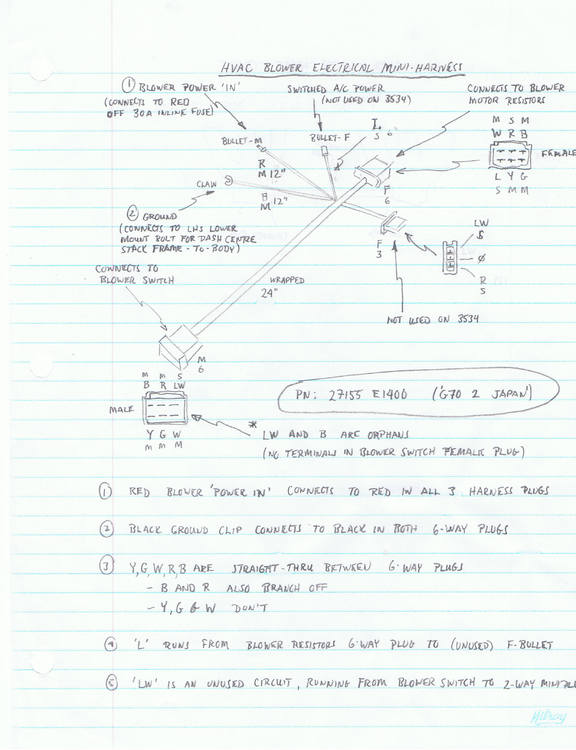 HVAC BLOWER ELECTRICAL MINI-HARNESS
① BLOWER POWER 'IN'
(CONNECTS TO RED
OFF 30A INLINE FUSE)
SWITCHED A/C POWER
(NOT USED ON 3534)
CONNECTS TO BLOWER
MOTOR RESISTORS
BULLET-M
BULLET-F
L
S 6"
M S M
W R B
FEMALE
L Y G
S M M
R
M 12"
CLAW
B
M 12"
F
6
② GROUND
(CONNECTS TO LHS LOWER
MOUNT BOLT FOR DASH CENTRE
STACK FRAME-TO-BODY)
F
3
LW
S
Ø
R
S
CONNECTS TO
BLOWER SWITCH
WRAPPED
24"
NOT USED ON 3534
M
6
M M S
B R LW
MALE
Y G W
M M M
PN: 27155 E1400 ('G70 2 JAPAN')
* LW AND B ARE ORPHANS
(NO TERMINALS IN BLOWER SWITCH FEMALE PLUG)
① RED BLOWER 'POWER IN' CONNECTS TO RED IN ALL 3 HARNESS PLUGS
② BLACK GROUND CLIP CONNECTS TO BLACK IN BOTH 6-WAY PLUGS
③ Y,G,W,R,B ARE STRAIGHT-THRU BETWEEN 6-WAY PLUGS
- B AND R ALSO BRANCH OFF
- Y, G & W DON'T
④ 'L' RUNS FROM BLOWER RESISTORS 6-WAY PLUG TO (UNUSED) F-BULLET
⑤ 'LW' IS AN UNUSED CIRCUIT, RUNNING FROM BLOWER SWITCH TO 2-WAY MINI